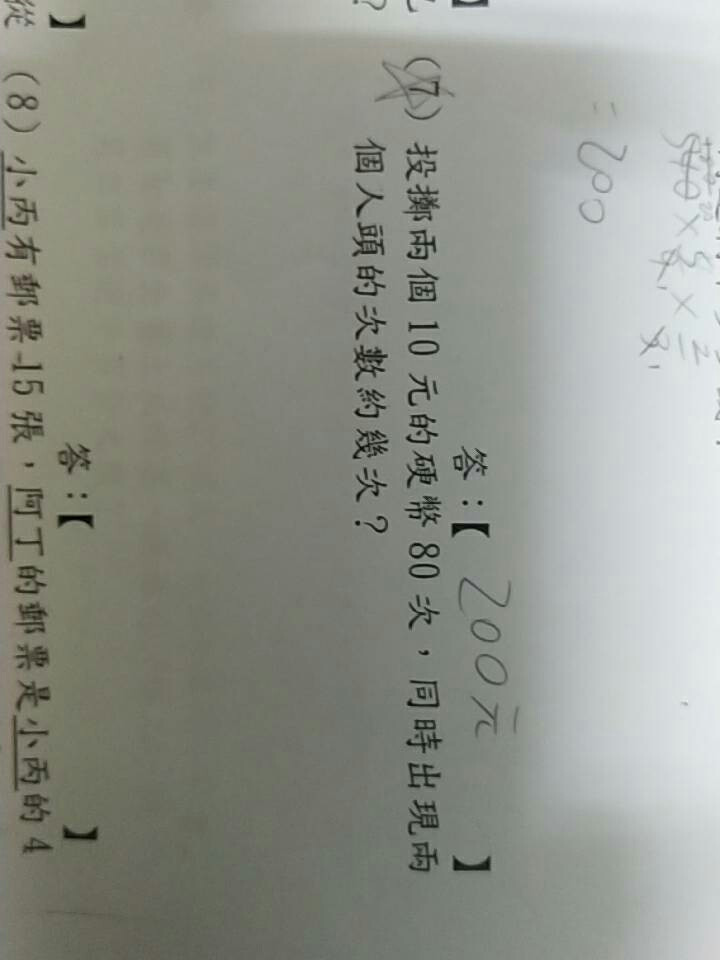 = 200
答：【 200元 】
(7) 投擲兩個 10 元的硬幣 80 次，同時出現兩
個人頭的次數約幾次？
答：【 】
(8) 小丙有郵票 15 張，阿丁的郵票是小丙的 4